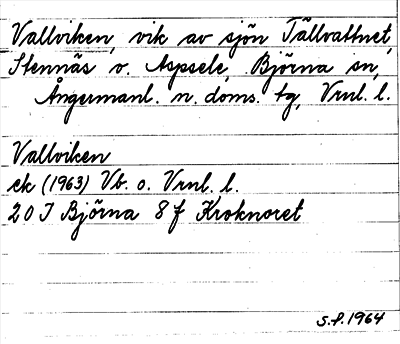 Vallviken, vik av sjön Tällvattnet,
Stennäs o. Aspsele, Björna sn,
Ångermanl. n. doms. tg, Vrnl. l.
Vallviken
ek (1963) Vb. o. Vrnl. l.
20 I Björna 8 f Kroknoret
S.P. 1964